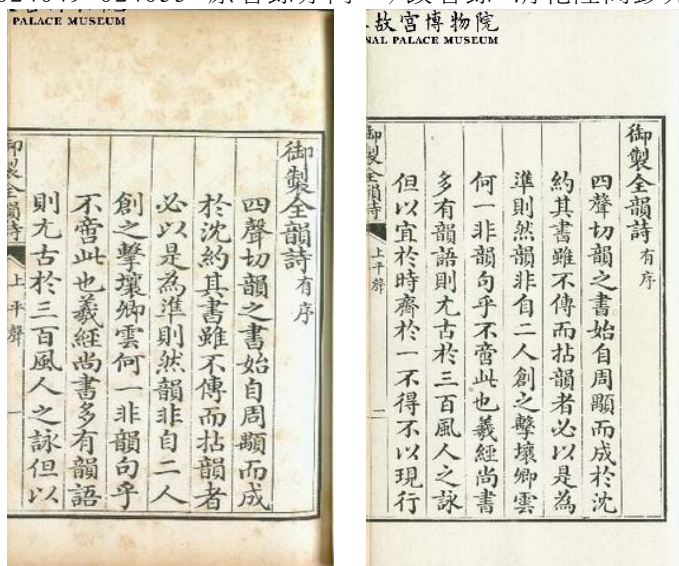 PALACE MUSEUM
御製全韻詩有序
四聲切韻之書始自周顒而成
於沈約其書雖不傳而拈韻者
必以是為準則然韻非自二人
創之擊壤卿雲何一非韻句乎
不啻此也羲經尚書多有韻語
則尤古於三百風人之詠但以
御製全韻詩
上平聲
一
故宮博物院
NAL PALACE MUSEUM
御製全韻詩有序
四聲切韻之書始自周顒而成於沈
約其書雖不傳而拈韻者必以是為
準則然韻非自二人創之擊壤卿雲
何一非韻句乎不啻此也羲經尚書
多有韻語則尤古於三百風人之詠
但以宜於時齊於一不得不以現行
御製全韻詩
上平聲
一